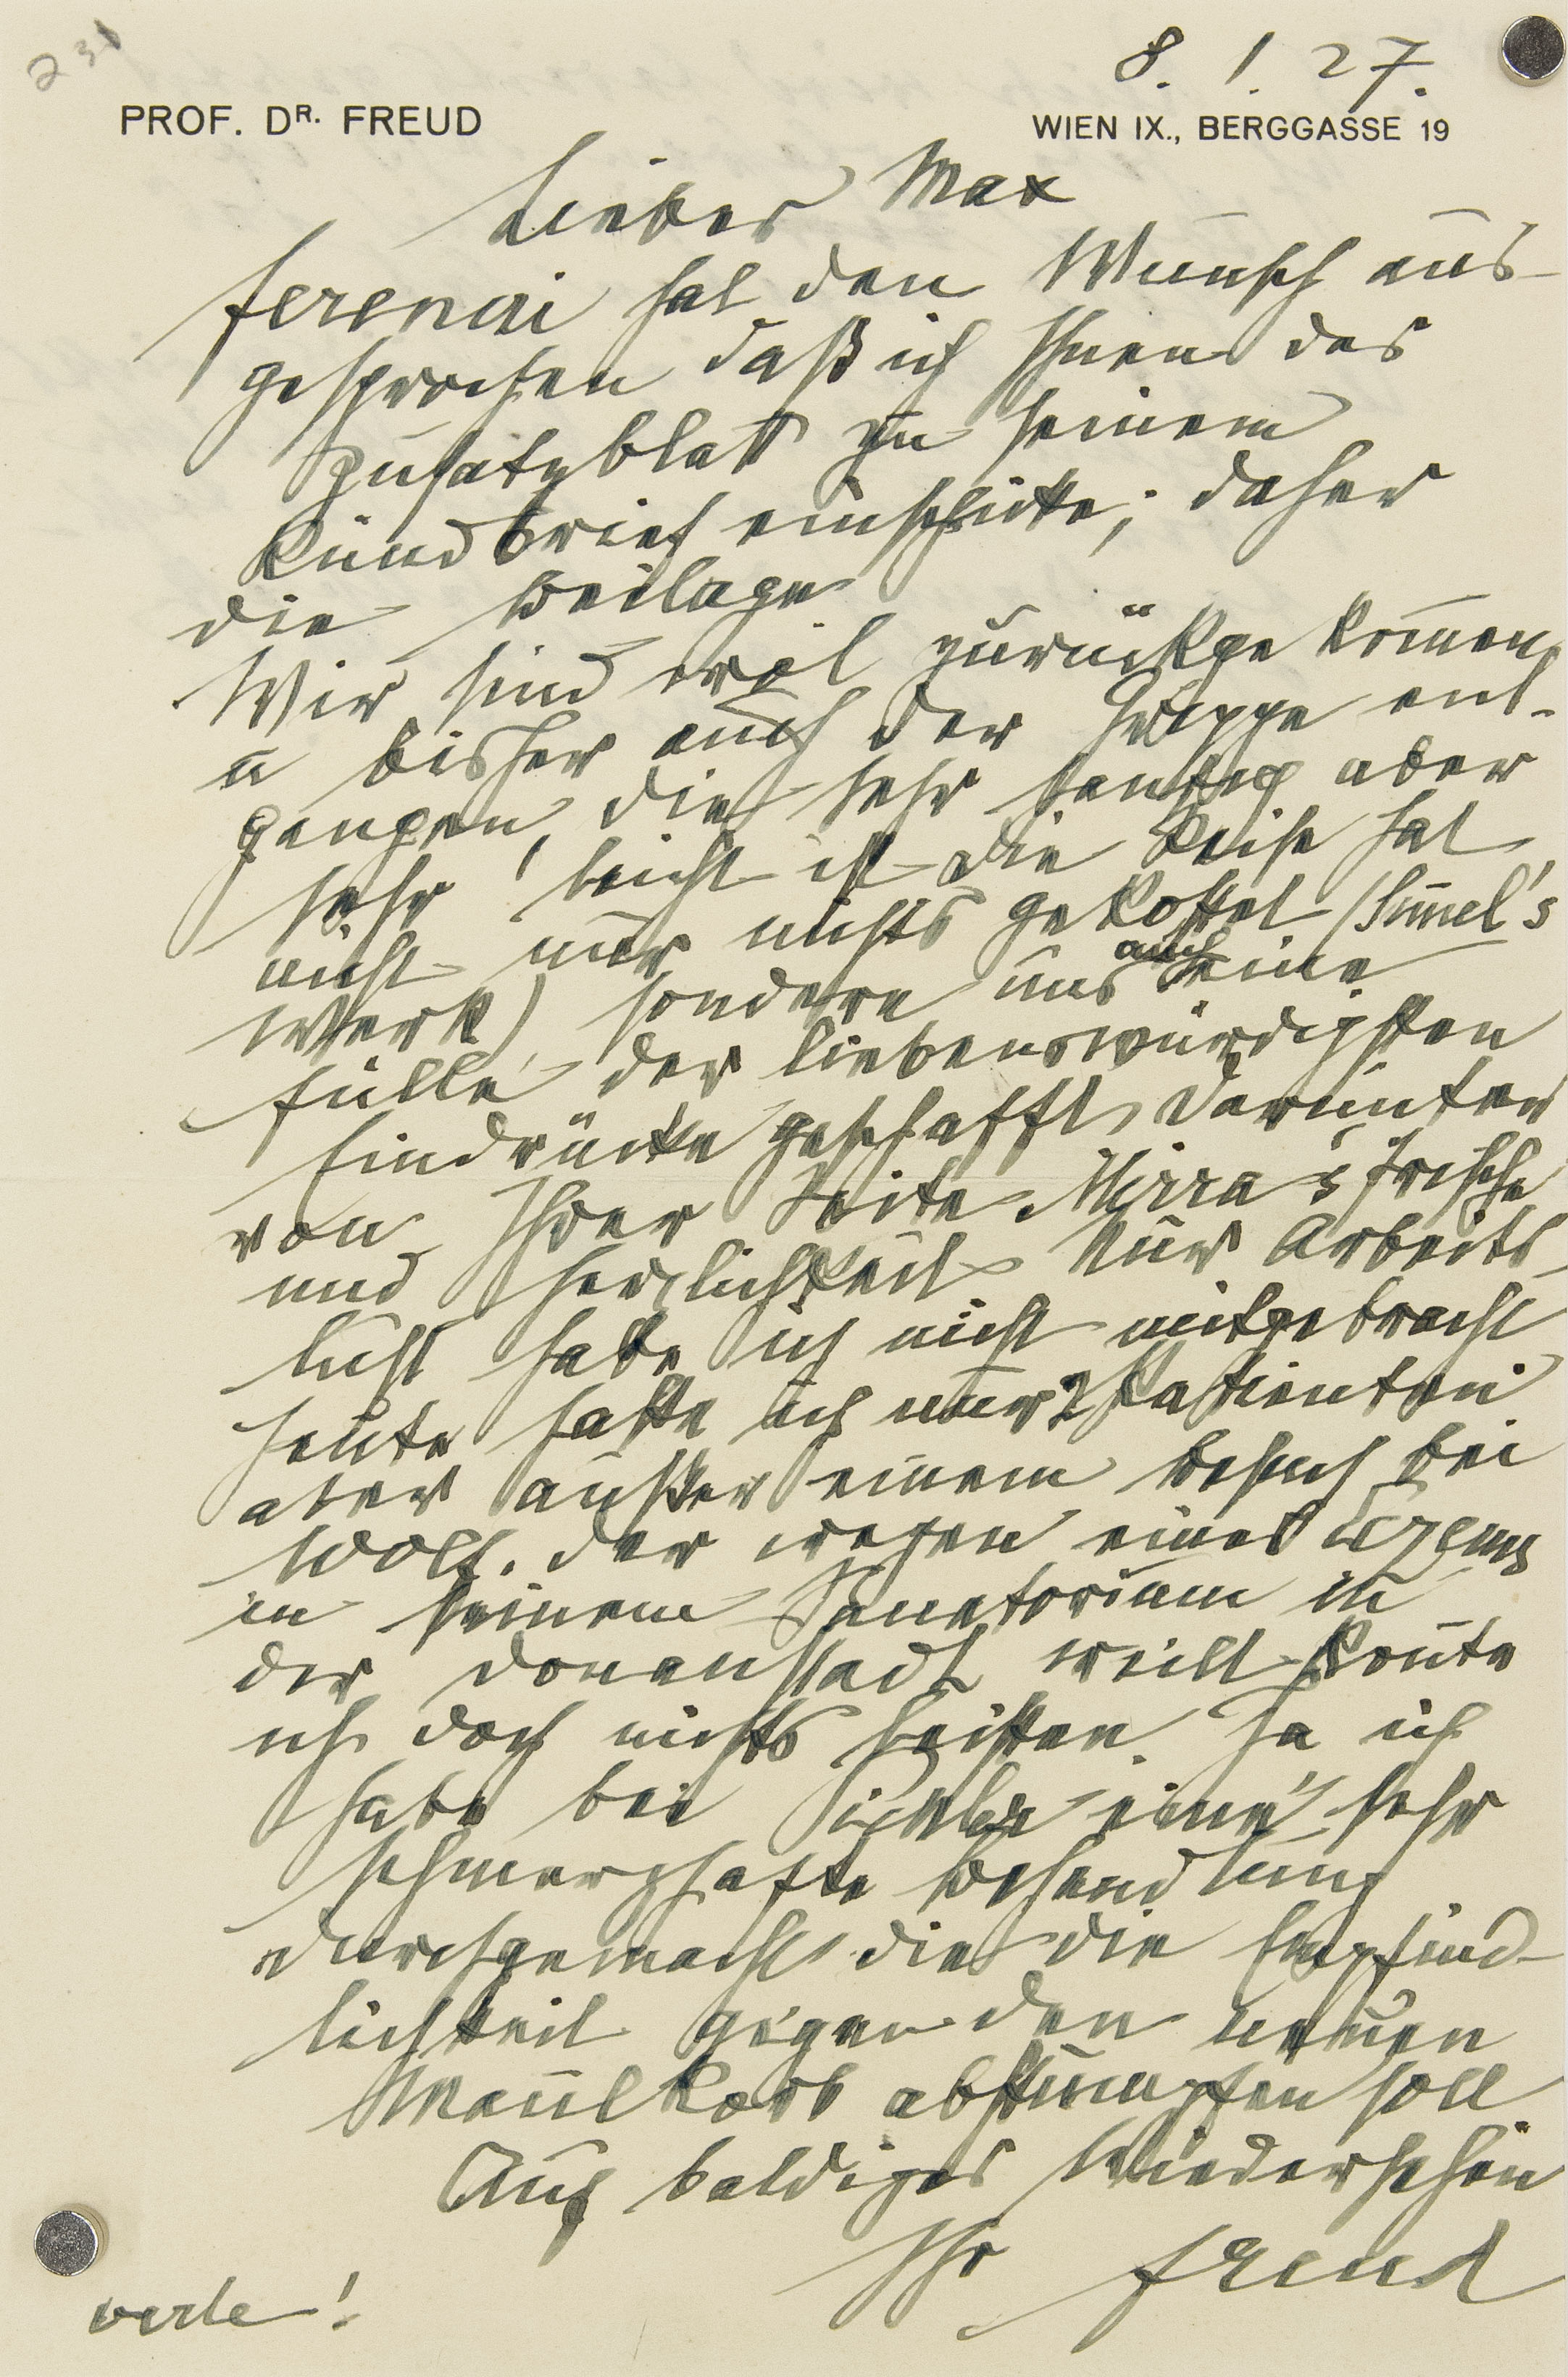 231
8. 1. 27.
PROF. DR. FREUD
WIEN IX., BERGGASSE 19
Lieber Max
Ferenczi hat den Wunsch aus-
gesprochen daß ich Ihnen das
Zusatzblatt zu seinem
Rundbrief einschicke; daher
die Beilage
Wir sind wol zurückgekom̄en,
u bisher auch der Grippe ent-
gangen, die sehr häufig aber
sehr leicht ist. Die Reise hat
nicht nur nichts gekostet (Sim̄el's
Werk), sondern uns auch eine
Fülle der liebenswürdigsten
Eindrücke geschafft, darunter
von Ihrer Seite Mirra's Frische
und Herzlichkeit. Nur Arbeits-
lust habe ich nicht mitgebracht
Heute hatte ich nur 2 Patienten
aber außer einem Besuch bei
Wolf, der wegen eines Eczems
in seinem Sanatorium in
der Donaustadt weilt, kon̄te
ich doch nichts leisten. Ja ich
habe bei Pichler eine sehr
schmerzhafte Behandlung
durchgemacht, die die Empfind-
lichkeit gegen den neuen
Maulkorb abstumpfen soll.
Auf baldiges Wiedersehen
Ihr Freud
verte!